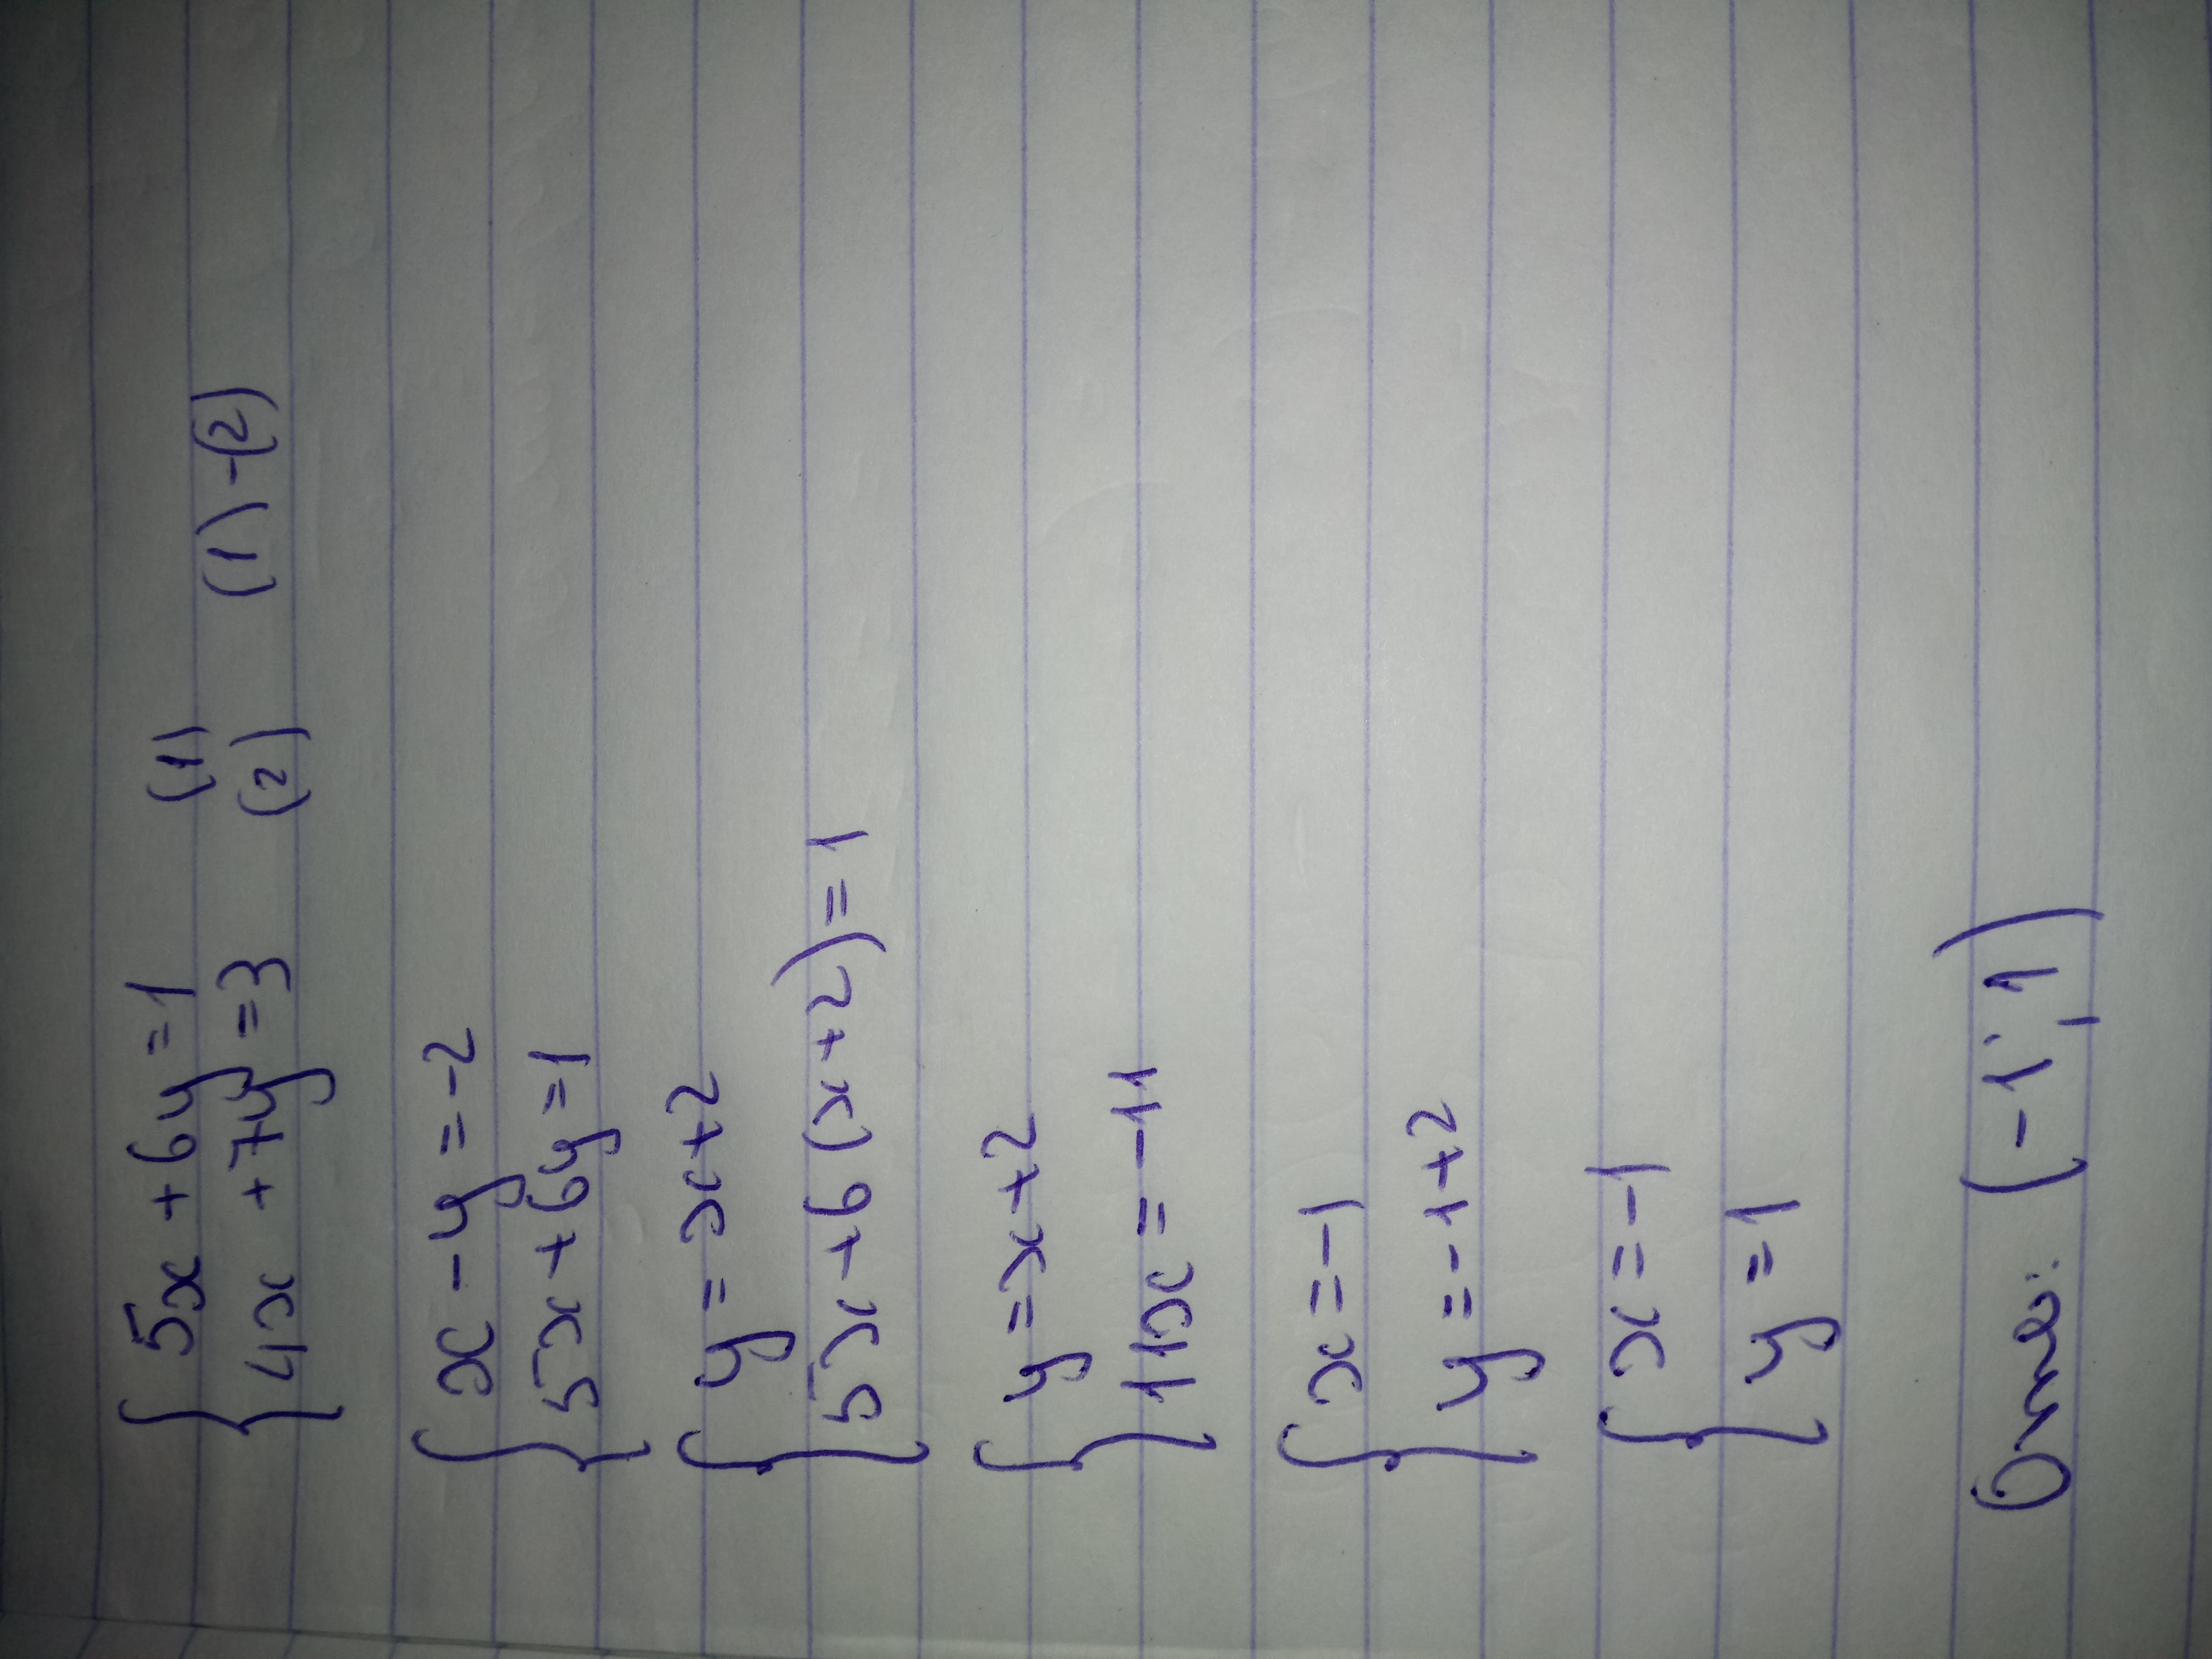 5x + 6y = 1 (1)
4x + 7y = 3 (2) (1) - (2)
x - y = -2
5x + 6y = 1
y = x + 2
5x + 6(x + 2) = 1
y = x + 2
11x = -11
x = -1
y = -1 + 2
x = -1
y = 1
Ответ: (-1; 1)